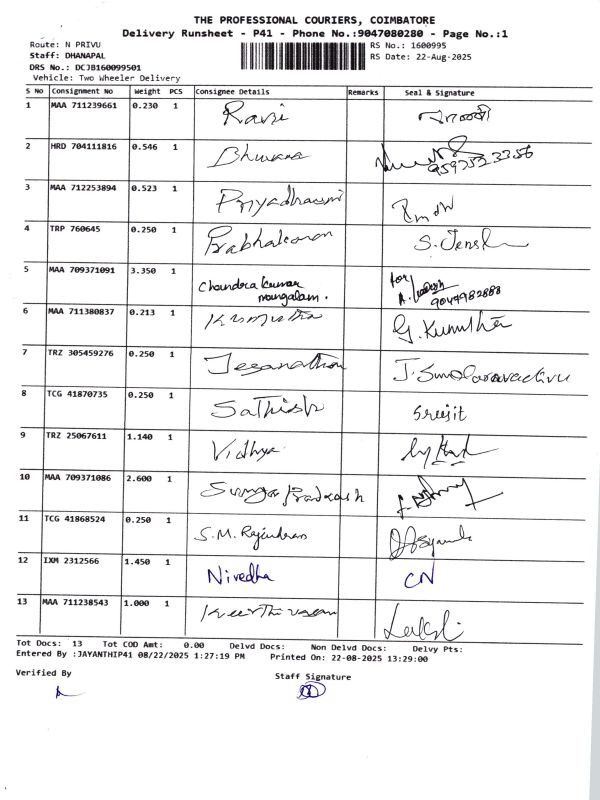 THE PROFESSIONAL COURIERS, COIMBATORE
Delivery Runsheet - P41 - Phone No.:9047080280 - Page No.:1
Route: N PRIVU
RS No.: 1600995
Staff: DHANAPAL
RS Date: 22-Aug-2025
DRS No.: DCJB160099501
Vehicle: Two Wheeler Delivery
S No Consignment No Weight PCS Consignee Details Remarks Seal & Signature
1 MAA 711239661 0.230 1 Ravi
2 HRD 704111816 0.546 1 Bhuvana 9597523356
3 MAA 712253894 0.523 1 Priyadharsini
4 TRP 760645 0.250 1 Prabhakaran S. Jensl
5 MAA 709371091 3.350 1 Chandra kumar mangalam. for 9047982888
6 MAA 711380837 0.213 1 Kumutha G. Kumutha
7 TRZ 305459276 0.250 1 Jeganathan J. Sundaravadivu
8 TCG 41870735 0.250 1 Sathish Sreejit
9 TRZ 25067611 1.140 1 Vidhya
10 MAA 709371086 2.600 1 Surya Prakash
11 TCG 41868524 0.250 1 S.M. Rajendran
12 IXM 2312566 1.450 1 Nivedha CN
13 MAA 711238543 1.000 1 Keerthivasan
Tot Docs: 13 Tot COD Amt: 0.00 Delvd Docs: Non Delvd Docs: Delvy Pts:
Entered By :JAYANTHIP41 08/22/2025 1:27:19 PM Printed On: 22-08-2025 13:29:00
Verified By
Staff Signature